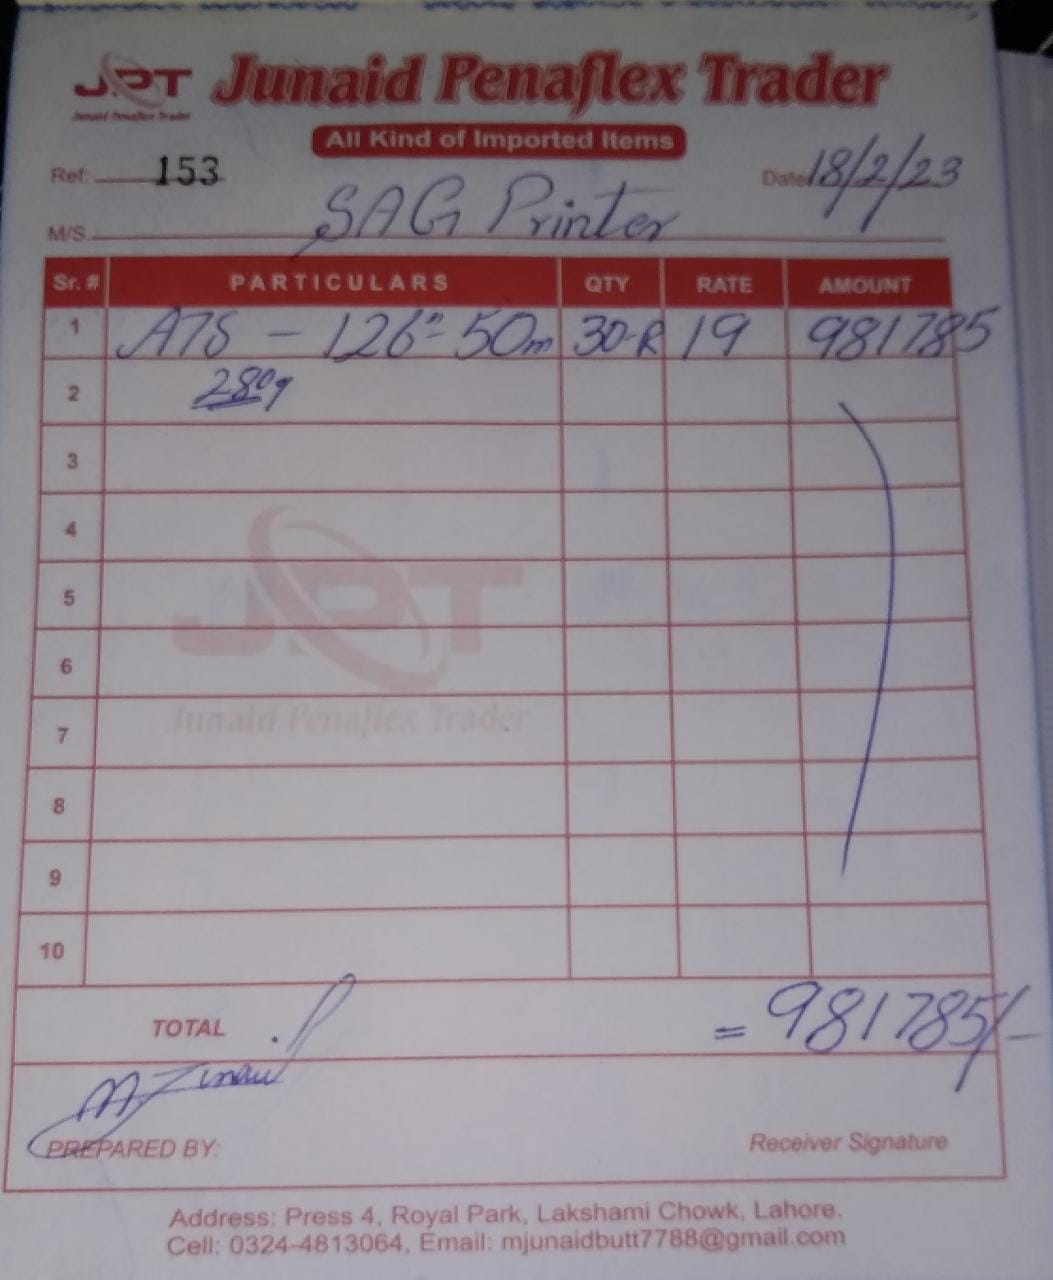 JPT Junaid Penaflex Trader
Junaid Penaflex Trader
All Kind of Imported Items
Ref: 153 Date 18/2/23
M/S. SAG Printer
Sr. # PARTICULARS QTY RATE AMOUNT
1 A78 - 126" 50m 30-R 19 981785
2 280g
3
4
5
6
7
8
9
10
JPT
Junaid Penaflex Trader
TOTAL = 981785/-
PREPARED BY: Receiver Signature
Address: Press 4, Royal Park, Lakshami Chowk, Lahore.
Cell: 0324-4813064, Email: mjunaidbutt7788@gmail.com